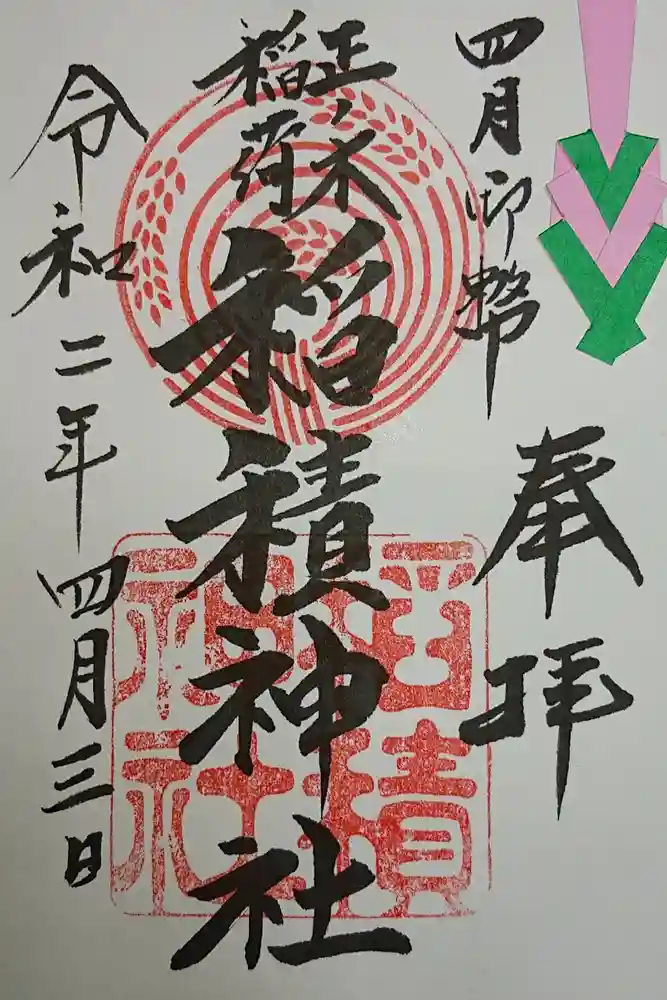 四月御幣
奉拝
正ノ木
稲荷
稲積神社
令和二年四月三日
稲積
神社